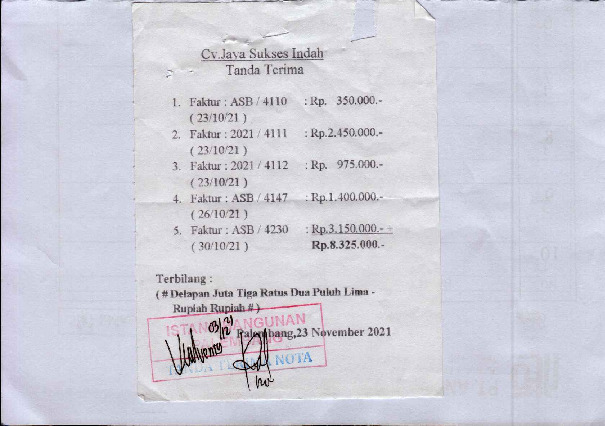 Cv.Jaya Sukses Indah
Tanda Terima
1. Faktur : ASB / 4110 : Rp. 350.000.-
( 23/10/21 )
2. Faktur : 2021 / 4111 : Rp.2.450.000.-
( 23/10/21 )
3. Faktur : 2021 / 4112 : Rp. 975.000.-
(23/10/21 )
4. Faktur : ASB / 4147 : Rp.1.400.000.-
(26/10/21 )
5. Faktur : ASB / 4230 : Rp.3.150.000.- +
(30/10/21 ) Rp.8.325.000.-
Terbilang :
( # Delapan Juta Tiga Ratus Dua Puluh Lima -
Rupiah Rupiah # )
ISTANA BANGUNAN
Palembang,23 November 2021
PALEMBANG
TANDA TERIMA NOTA